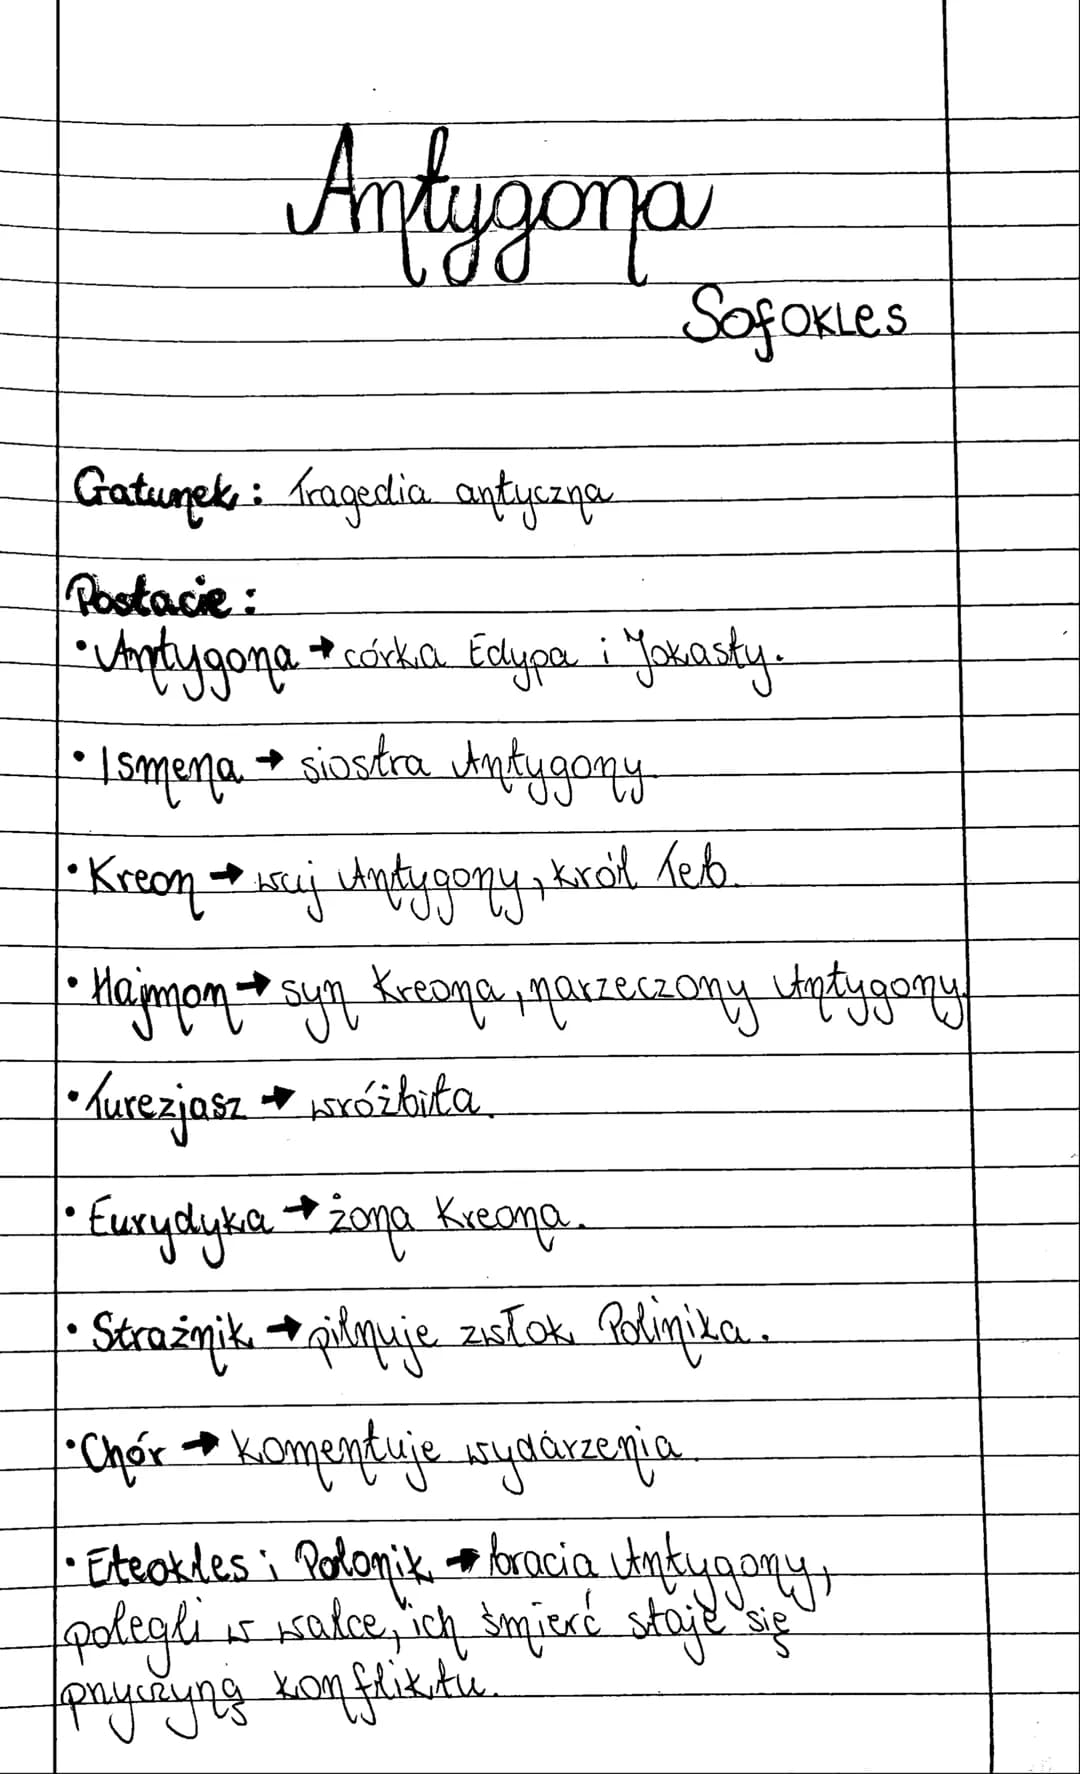 Antygona
Sofokles
Gatunek: Tragedia antyczna
Postacie:
• Antygona → córka Edypa i Jokasty.
• Ismena → siostra Antygony
• Kreon → wuj Antygony, król Teb.
• Hajmon → syn Kreona, narzeczony Antygony.
• Turezjasz → wróżbita.
• Eurydyka → żona Kreona.
• Strażnik → pilnuje zwłok Polinika.
• Chór → komentuje wydarzenia.
• Eteokles i Polonik → bracia Antygony,
polegli w walce, ich śmierć staje się
przyczyną konfliktu.